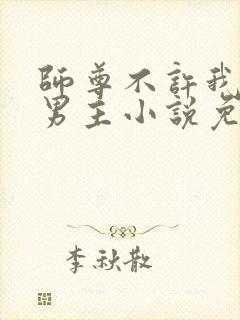 師尊不許我
男主小說免
李秋散